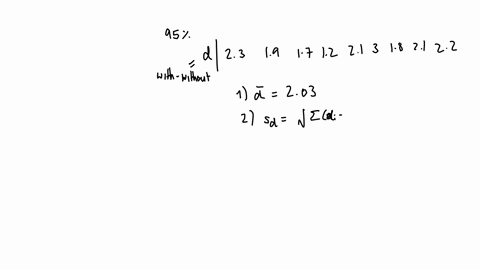 95%
d | 2.3 1.9 1.7 1.2 2.1 3 1.8 2.1 2.2
=
with-without
1) d̄ = 2.03
2) sd = √Σ(di -